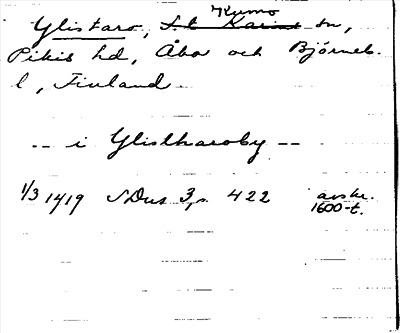 Ylistaro, S:t Karins Kumo sn,
Pikis hd, Åbo och Björneb.
l, Finland.
-- i Ylistharoby --
1/3 1419 SDns 3, s. 422 avskr.
1600-t.